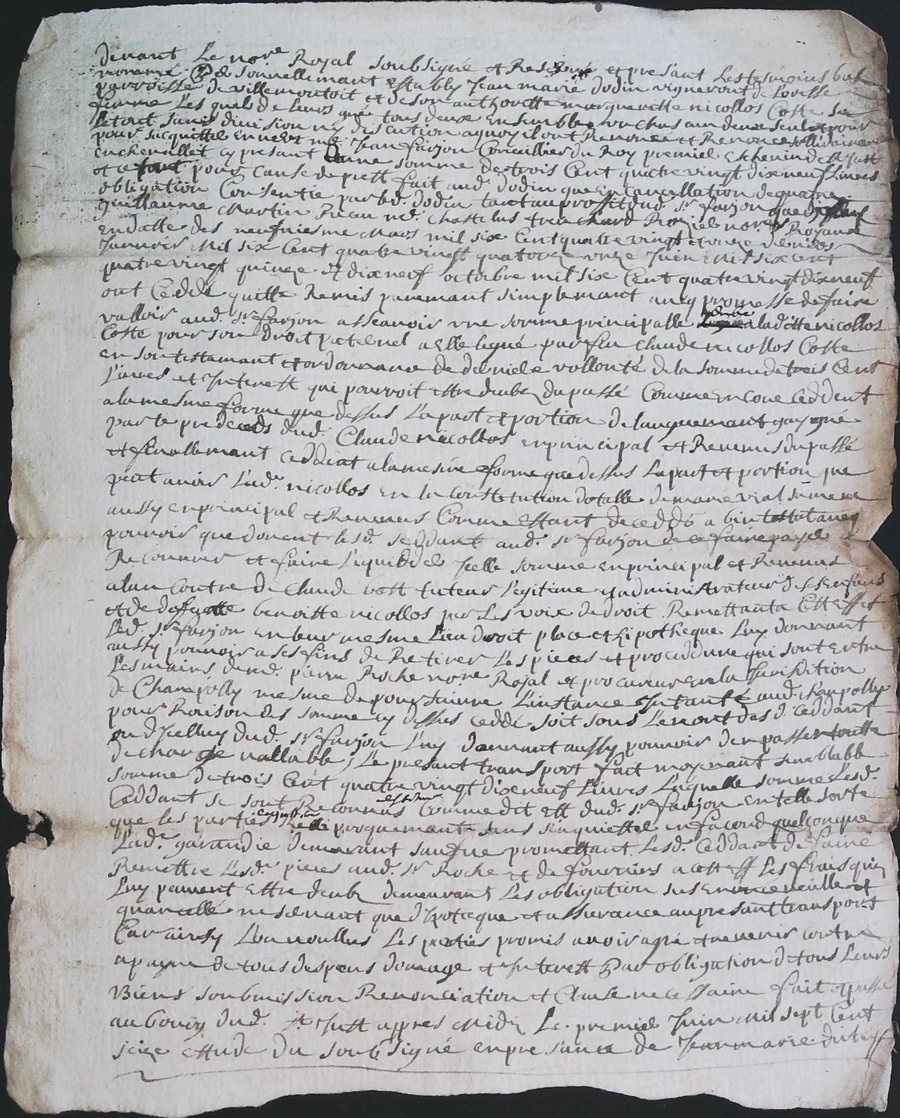 devant Le nore Royal soubsigné et Res et presant Les tesmoins bas
nommé personnellemant establÿ Jean marie dodin vigneront de
parroisse de villemontoit et de son authoritte margueritte nicollos Coste sa
femme Les quels de leurs gré tous deux ensembles ou chascun deux seul et pour
Le tout sans division ny discution a quoy ilont Renoncé et Renonce
pour sacquitter envers mr Jean farjon Conceillier du Roy premier Eschevin de St Just
en chevallet cy presant dune somme de trois Cent quatre vingt dixneuf Livres
et ce pour cause de prest fait aud. dodin que en Cancellation de quatre
obligation Consentie par led. dodin tant au proffit dud. sr farjon que de
guillaume martin Reçu me Chastelus nores Royaux
en datte des neufviesme mars mil six Cent quatre vingt et
Janvier mil six Cent quatre vingt quatorze onze Juin mil six cent
quatre vingt quinze et dixneuf octobre mil six Cent quatre vingt dixneuf
ont Ceddé quitte Remis puremant simplemant avecq promesse de faire
valloir aud. sr farjon assçavoir une somme principalle a laditte nicollos
Coste pour son droit paternel a elle legué par feu Claude nicollos Coste
en son testamant et ordonnance de derniere vollonté de la somme de trois Cent
Livres et Interest qui pourroit estre deube du passé Comme encore ceddent
a la mesme forme que dessus La part et portion de laugmemant gaigné
par le predeceds dud. Claude nicollos en principal et Revenus du passé
et finallemant ceddent a la mesme forme que dessus La part et portion que
peut avoir Lad. nicollos en la Constitution dotalle de marie vial sa mere
aussy en principal et Revenus Comme estant deceddé abintestat avecq
pouvoir que donent lesd. ceddant aud. sr farjon de ce faire payer
Recouvrer et faire Liquider Icelle somme en principal et Revenus
alan Contre de Claude tuteur Legitime et administrateur de ses enfans
et de deffunte benoitte nicollos par Les voie de droit Remettant a cest effet
Led. sr farjon en leur mesme Lieu droit place et hipotheque Luy donnant
aussy pouvoir a ses fins de Retirer Les pieces et procedure qui sont entre
Les mains de me pierre Roche nore Royal et procureur en la Jurisdition
de Champolly mesme de poursuivre Linstance Intanté aud. champolly
pour Raison des somme cy dessus ceddé soit sous Le nont des d. ceddant
ou dicelluy dud. sr farjon Luy donnant aussy pouvoir den passer toutte
decharge vallable, Le presant transport fait moyenant sur lad.
somme de trois Cent quatre vingt dixneuf Livres Laquelle somme Lesd.
Ceddant se sont Reconnus Comme dit est dud. sr farjon en telle sorte
que les parties Resiproquemant sans sacquitter en faccons quelconque
Lad. garandie demeurant sauf ue promettant Lesd. Ceddant de faire
Remettre Lesd. pieces aud. sr Roche et de fournirs a cest eff Les frais qui
Luy peuvent estre deub demeurant Les obligation sus
quancellé ne servant que dipoteque et assurance au presant transport
Car ainsy Lon voullus Les parties promis avoir agré et ne venir contre
a payne de tous despens domage et Interest Par obligation de tous Leurs
Biens soubmission Renonciation et Clause necessaire fait et passé
au bourg dud. St Just appres Midy Le premier Juin mil sept Cent
seize estude du soubsigné en presance de Jean marie